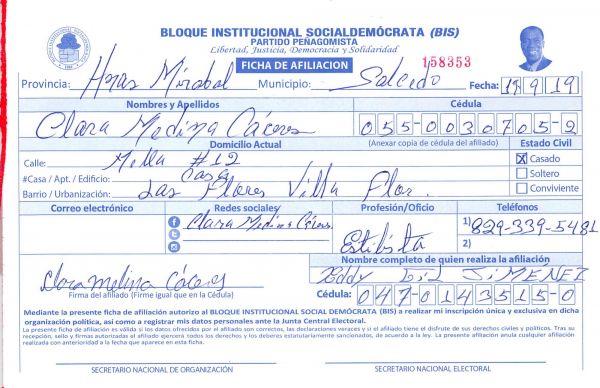 BLOQUE INSTITUCIONAL SOCIALDEMÓCRATA (BIS)
PARTIDO PEÑAGOMISTA
Libertad, Justicia, Democracia y Solidaridad
FICHA DE AFILIACION
158353
Provincia: Hnas Mirabal Municipio: Salcedo Fecha: 17 9 19
Nombres y Apellidos Cédula
Clara Medina Cáceres 055-0030705-2
Domicilio Actual (Anexar copia de cédula del afiliado)
Calle: Mella #12 Estado Civil
#Casa / Apt. / Edificio: Casa X Casado
Barrio / Urbanización: Las Flores Villa Flor. Soltero
Conviviente
Correo electrónico Redes sociales Profesión/Oficio Teléfonos
Clara Medina Cáceres Estilista 1) 829-339-5481
2)
Nombre completo de quien realiza la afiliación
Clara Melina Cáceres Eddy Gil JiMENEZ
Firma del afiliado (Firme igual que en la Cédula) Cédula: 047-0143515-0
Mediante la presente ficha de afiliación autorizo al BLOQUE INSTITUCIONAL SOCIAL DEMÓCRATA (BIS) a realizar mi inscripción única y exclusiva en dicha
organización política, así como a registrar mis datos personales ante la Junta Central Electoral.
La presente ficha de afiliación es válida si los datos ofrecidos por el afiliado son correctos, las declaraciones veraces y si el afiliado tiene el disfrute de sus derechos civiles y políticos. Tras su
recepción, sello y firmas autorizadas el afiliado ejercerá todos los derechos y los deberes estatutariamente sancionados, de acuerdo a la ley. La presente afiliación anula cualquier afiliación
realizada con anterioridad a la fecha que aparece en esta ficha.
SECRETARIO NACIONAL DE ORGANIZACIÓN SECRETARIO NACIONAL ELECTORAL